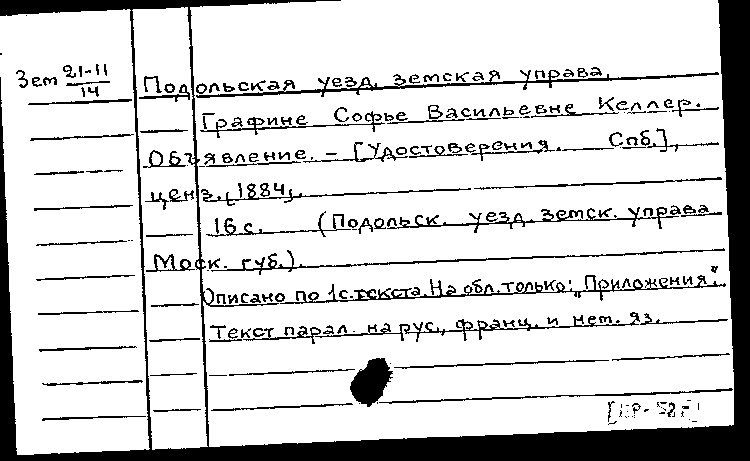 Зем 21-11/14
Подольская уезд. земская управа.
Графине Софье Васильевне Келлер.
Объявление. – [Удостоверения. Спб.],
ценз. [1884].
16 с. (Подольск. уезд. земск. управа
Моск. губ.).
Описано по 1 с. текста. На обл. только: „Приложения".
Текст парал. на рус., франц. и нем. яз.